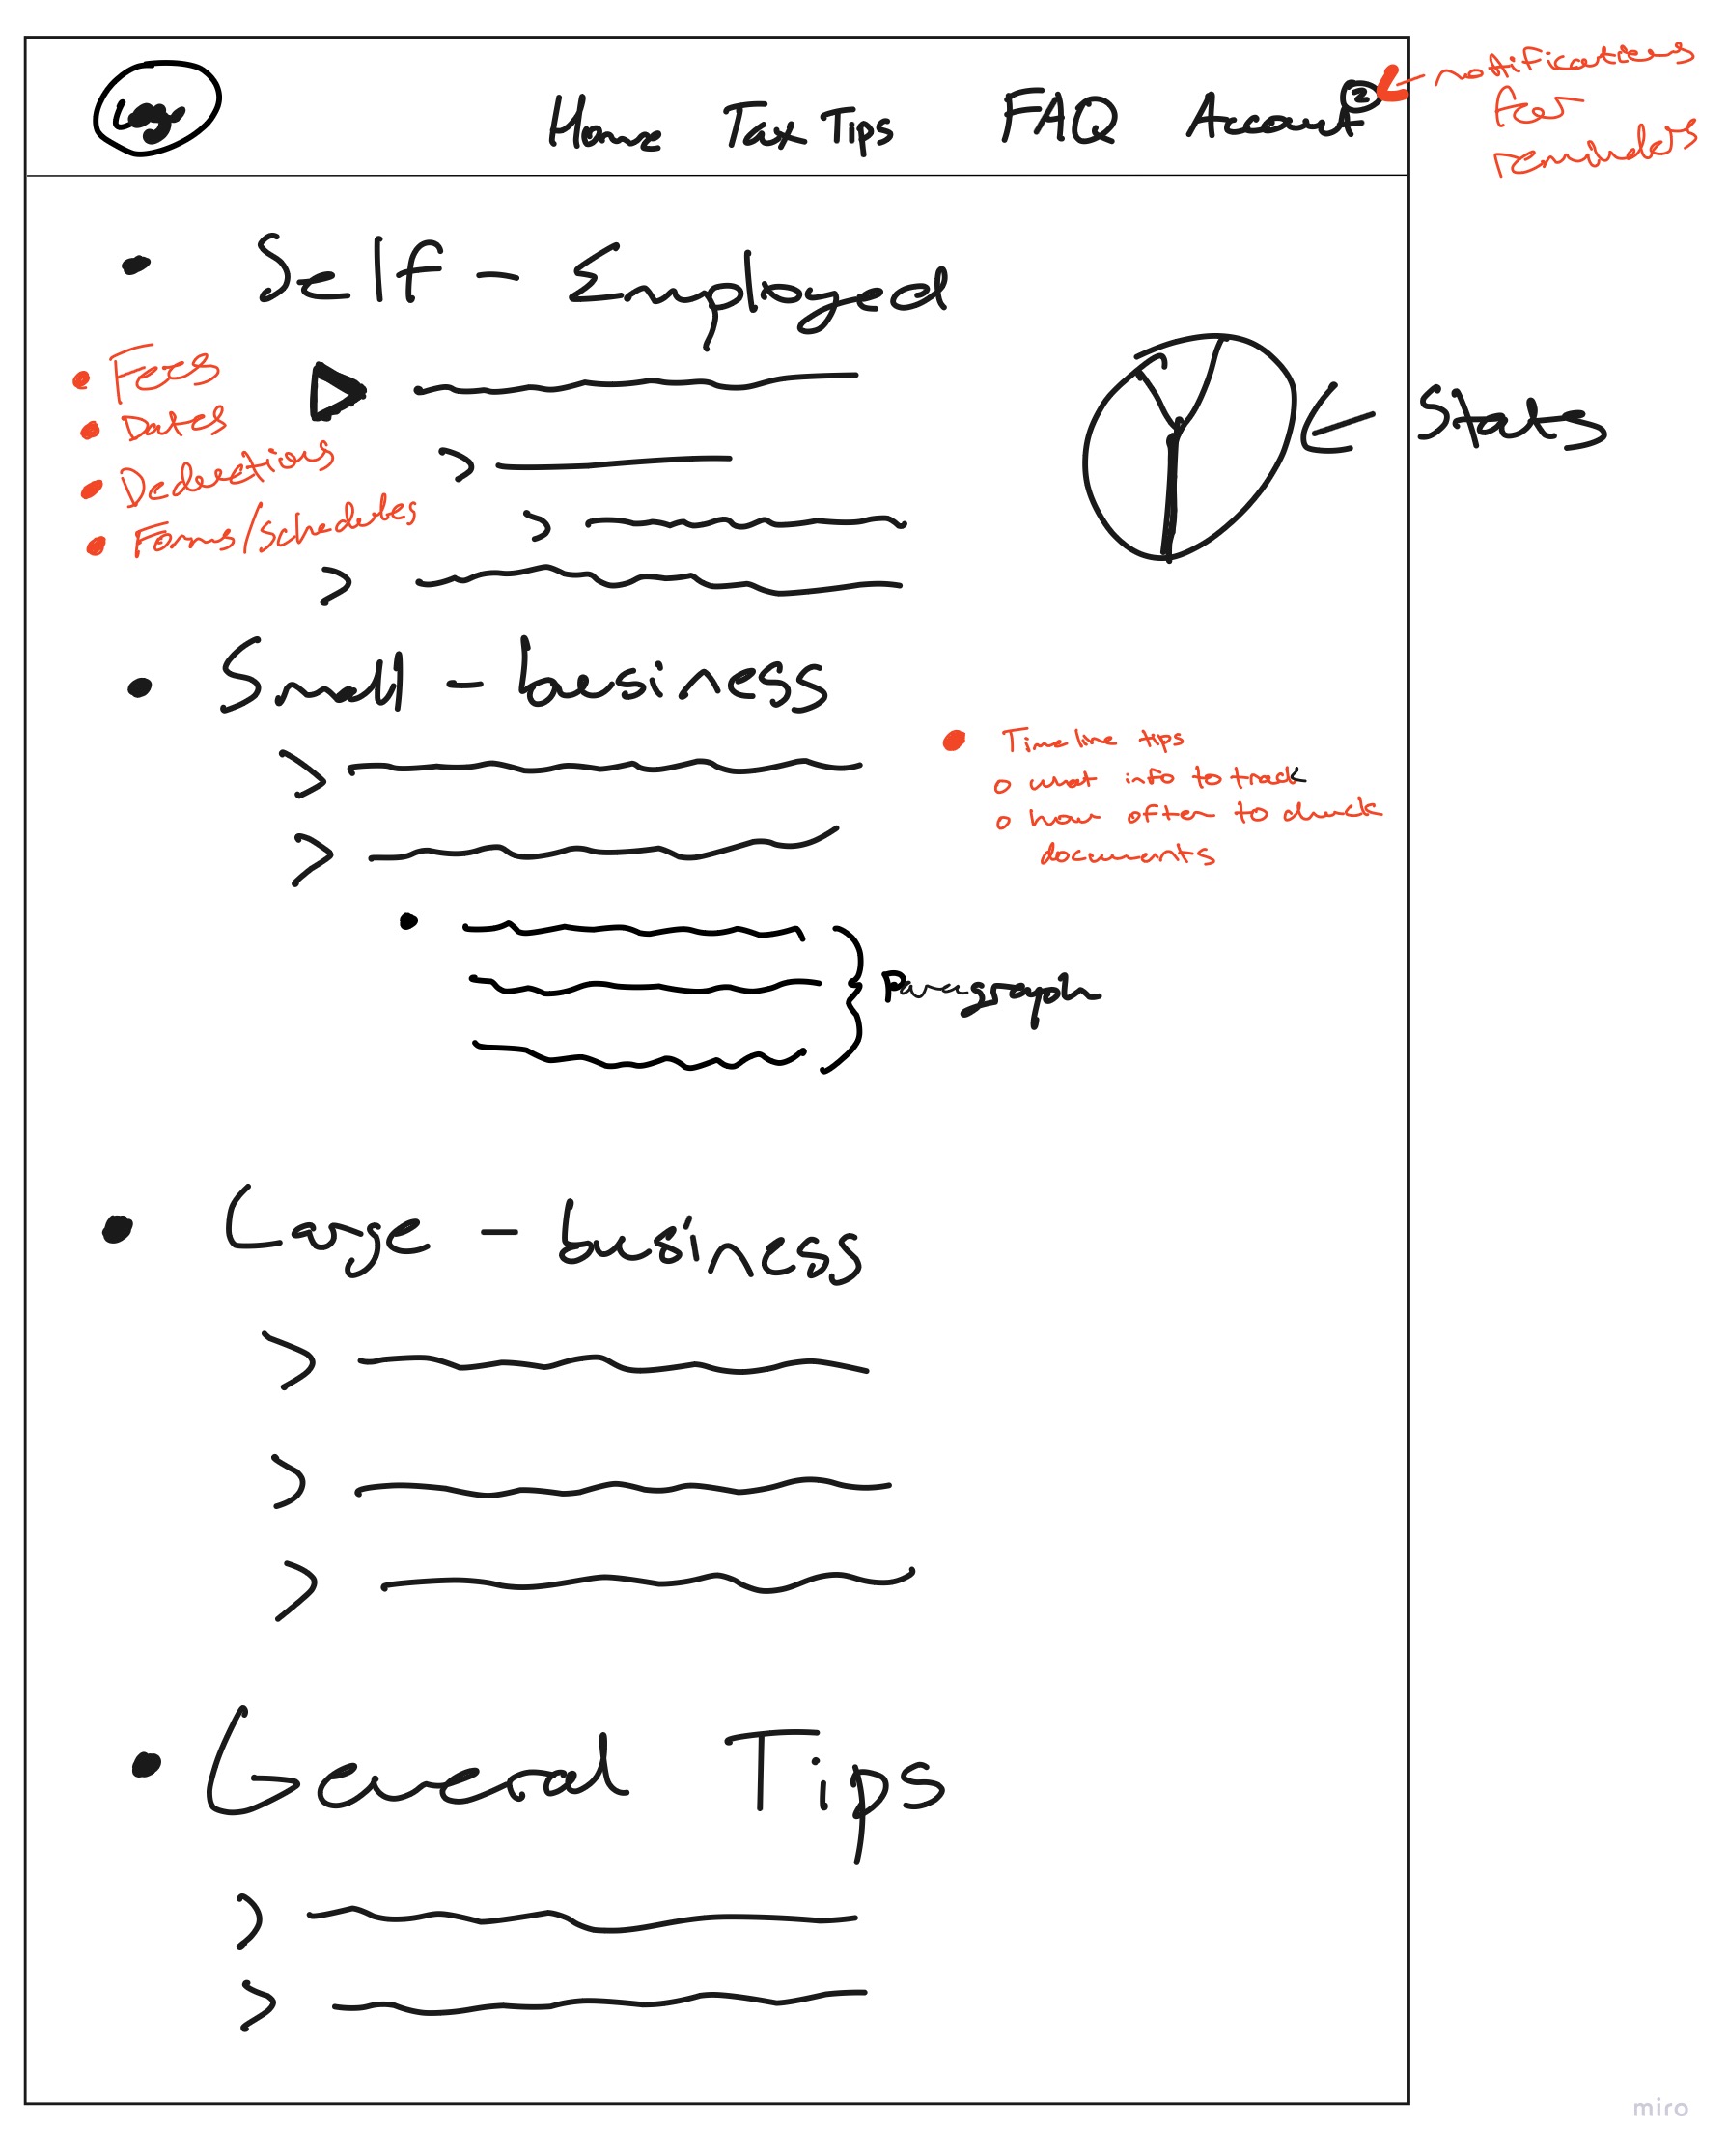 Logo
Home Tax Tips FAQ Account 2
notifications
for
reminders
Self - Employed
Fees
Dates
Deductions
Forms/schedules
Stats
Small - business
Timeline tips
what info to track
how often to check
documents
Paragraph
Large - business
General Tips
miro